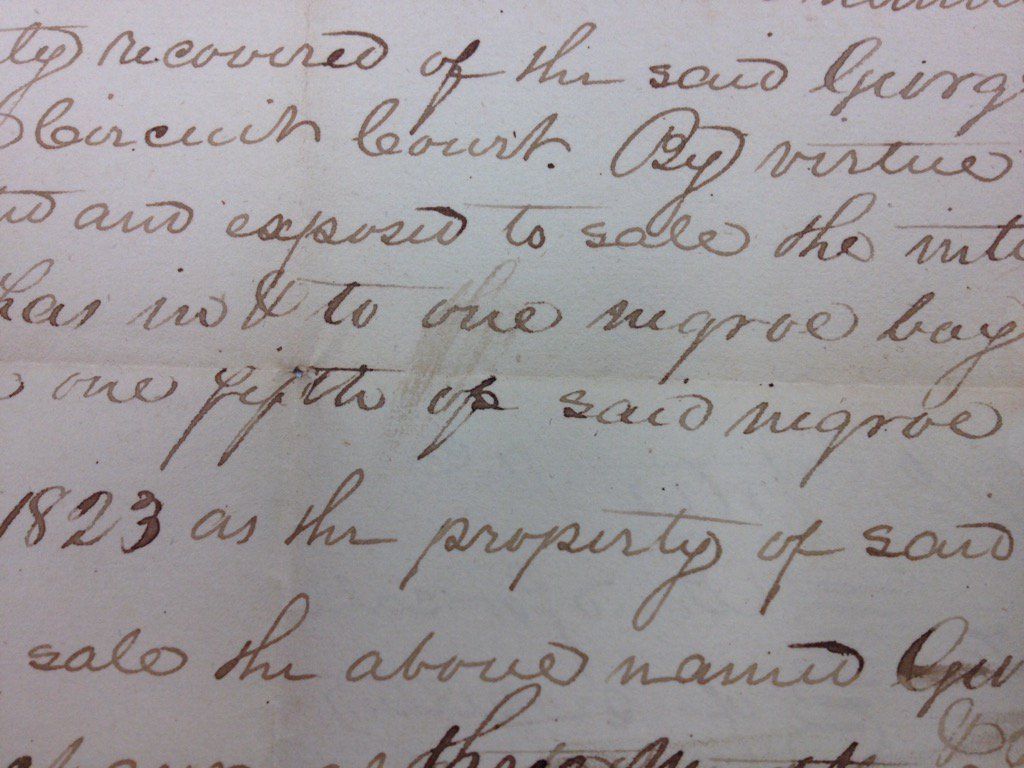 ty recovered of the said Georg
Circuit Court. By virtue
and exposed to sale the inte
has in & to one negroe boy
one fifth of said negroe
1823 as the property of said
sale the above named Geo